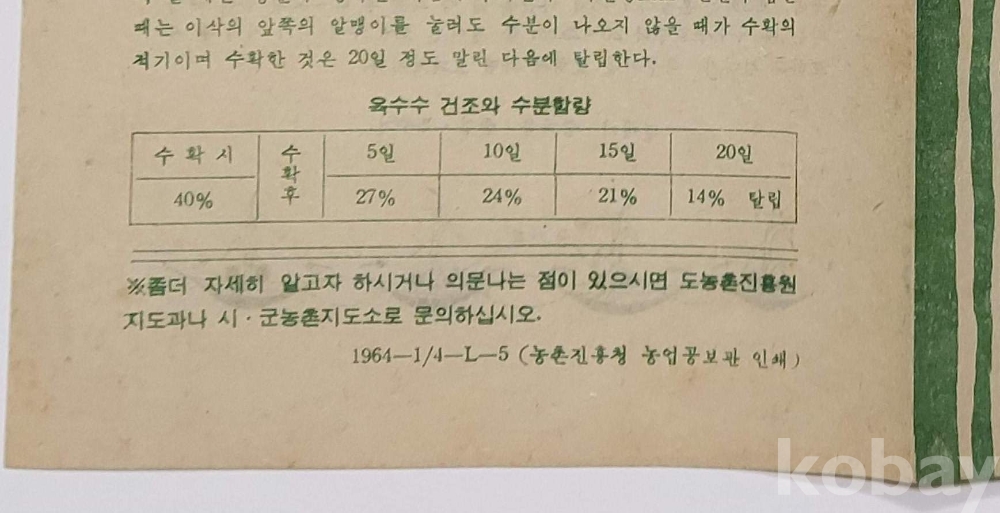 때는 이삭의 앞쪽의 알맹이를 눌러도 수분이 나오지 않을 때가 수확의
적기이며 수확한 것은 20일 정도 말린 다음에 탈립한다.
옥수수 건조와 수분함량
수 확 시 수확후 5일 10일 15일 20일
40% 27% 24% 21% 14% 탈립
※좀더 자세히 알고자 하시거나 의문나는 점이 있으시면 도농촌진흥원
지도과나 시·군농촌지도소로 문의하십시오.
1964—1/4—L—5 (농촌진흥청 농업공보관 인쇄)
kobay